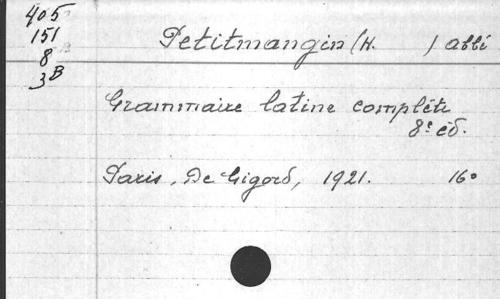 405
151
8 B
3B
Petitmangin (H. ) abbé
Grammaire latine complète
8e éd.
Paris, De Gigord, 1921. 16o